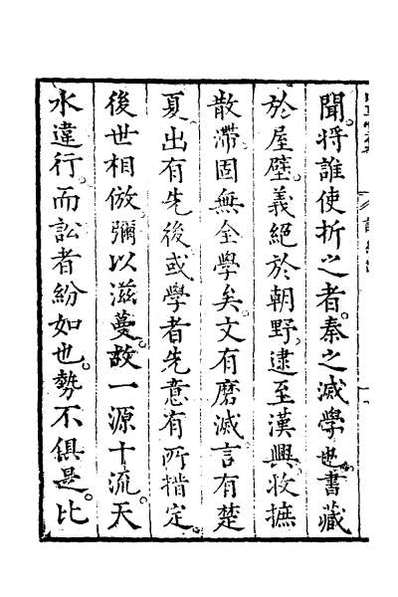 聞。將誰使折之者。秦之滅學也。書藏
於屋壁。義絕於朝野。逮至漢興。收摭
散滯。固無全學矣。文有磨滅。言有楚
夏。出有先後。或學者先意有所借定。
後世相倣。彌以滋蔓。故一源十流。天
水違行。而訟者紛如也。勢不俱是。比